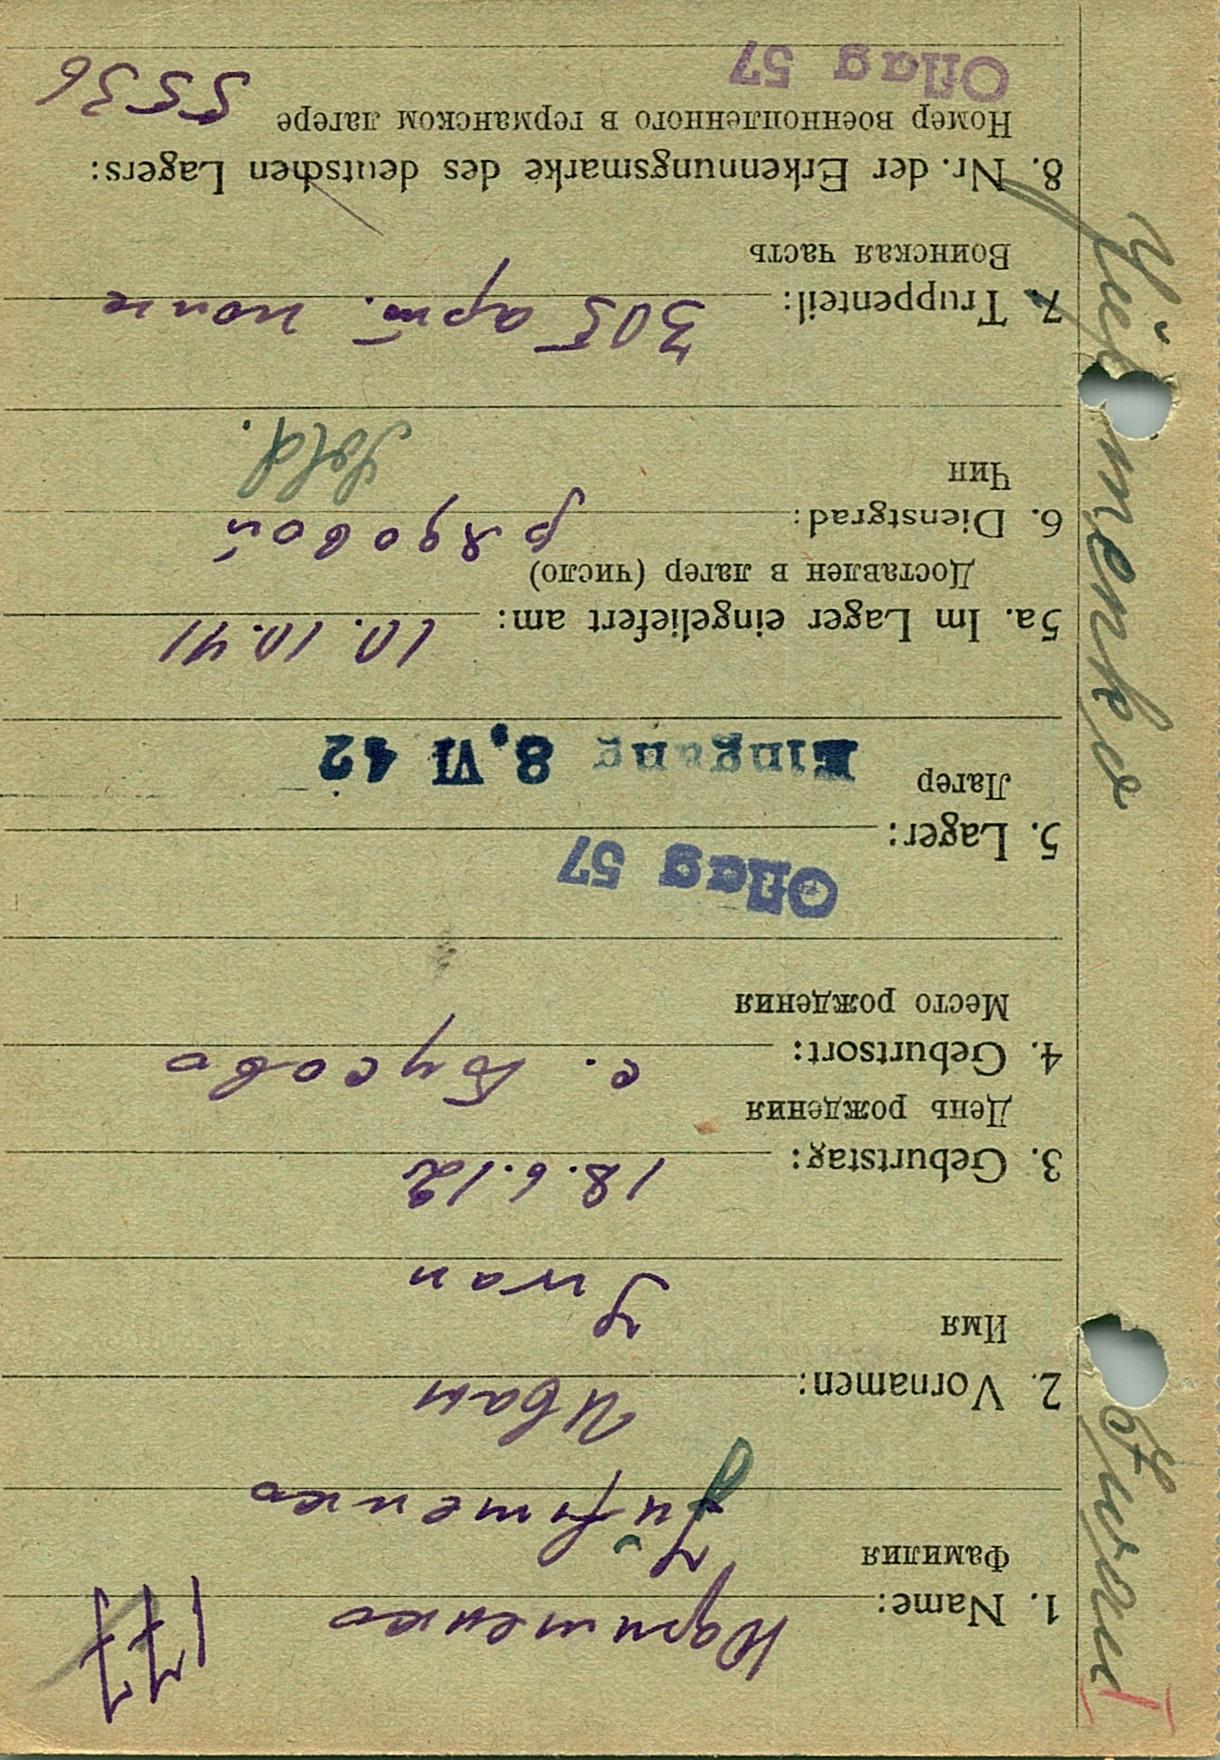 177
1. Name: Юрименко
Фамилия
Jurimenko
2. Vornamen: Иван
Имя
Iwan
3. Geburtstag: 18.6.12
День рождения
4. Geburtsort: с. Бусово
Место рождения
Oflag 57
5. Lager:
Лагер
Eingang 8. VI 42
5a. Im Lager eingeliefert am: 10.10.41
Доставлен в лагер (число)
6. Dienstgrad: рядовой
Чин
Sold.
7. Truppenteil: 305 арт. полк
Воинская часть
8. Nr. der Erkennungsmarke des deutschen Lagers:
Номер военнопленного в германском лагере 5536
Oflag 57
I
Iwan